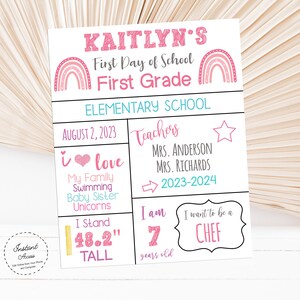 KAITLYN'S
First Day of School
First Grade
ELEMENTARY SCHOOL
AUGUST 2, 2023
i love
My Family
Swimming
Baby Sister
Unicorns
I Stand
48.2"
TALL
Teachers
Mrs. Anderson
Mrs. Richards
2023-2024
I am
7
years old
I want to be a
CHEF
Instant
Access